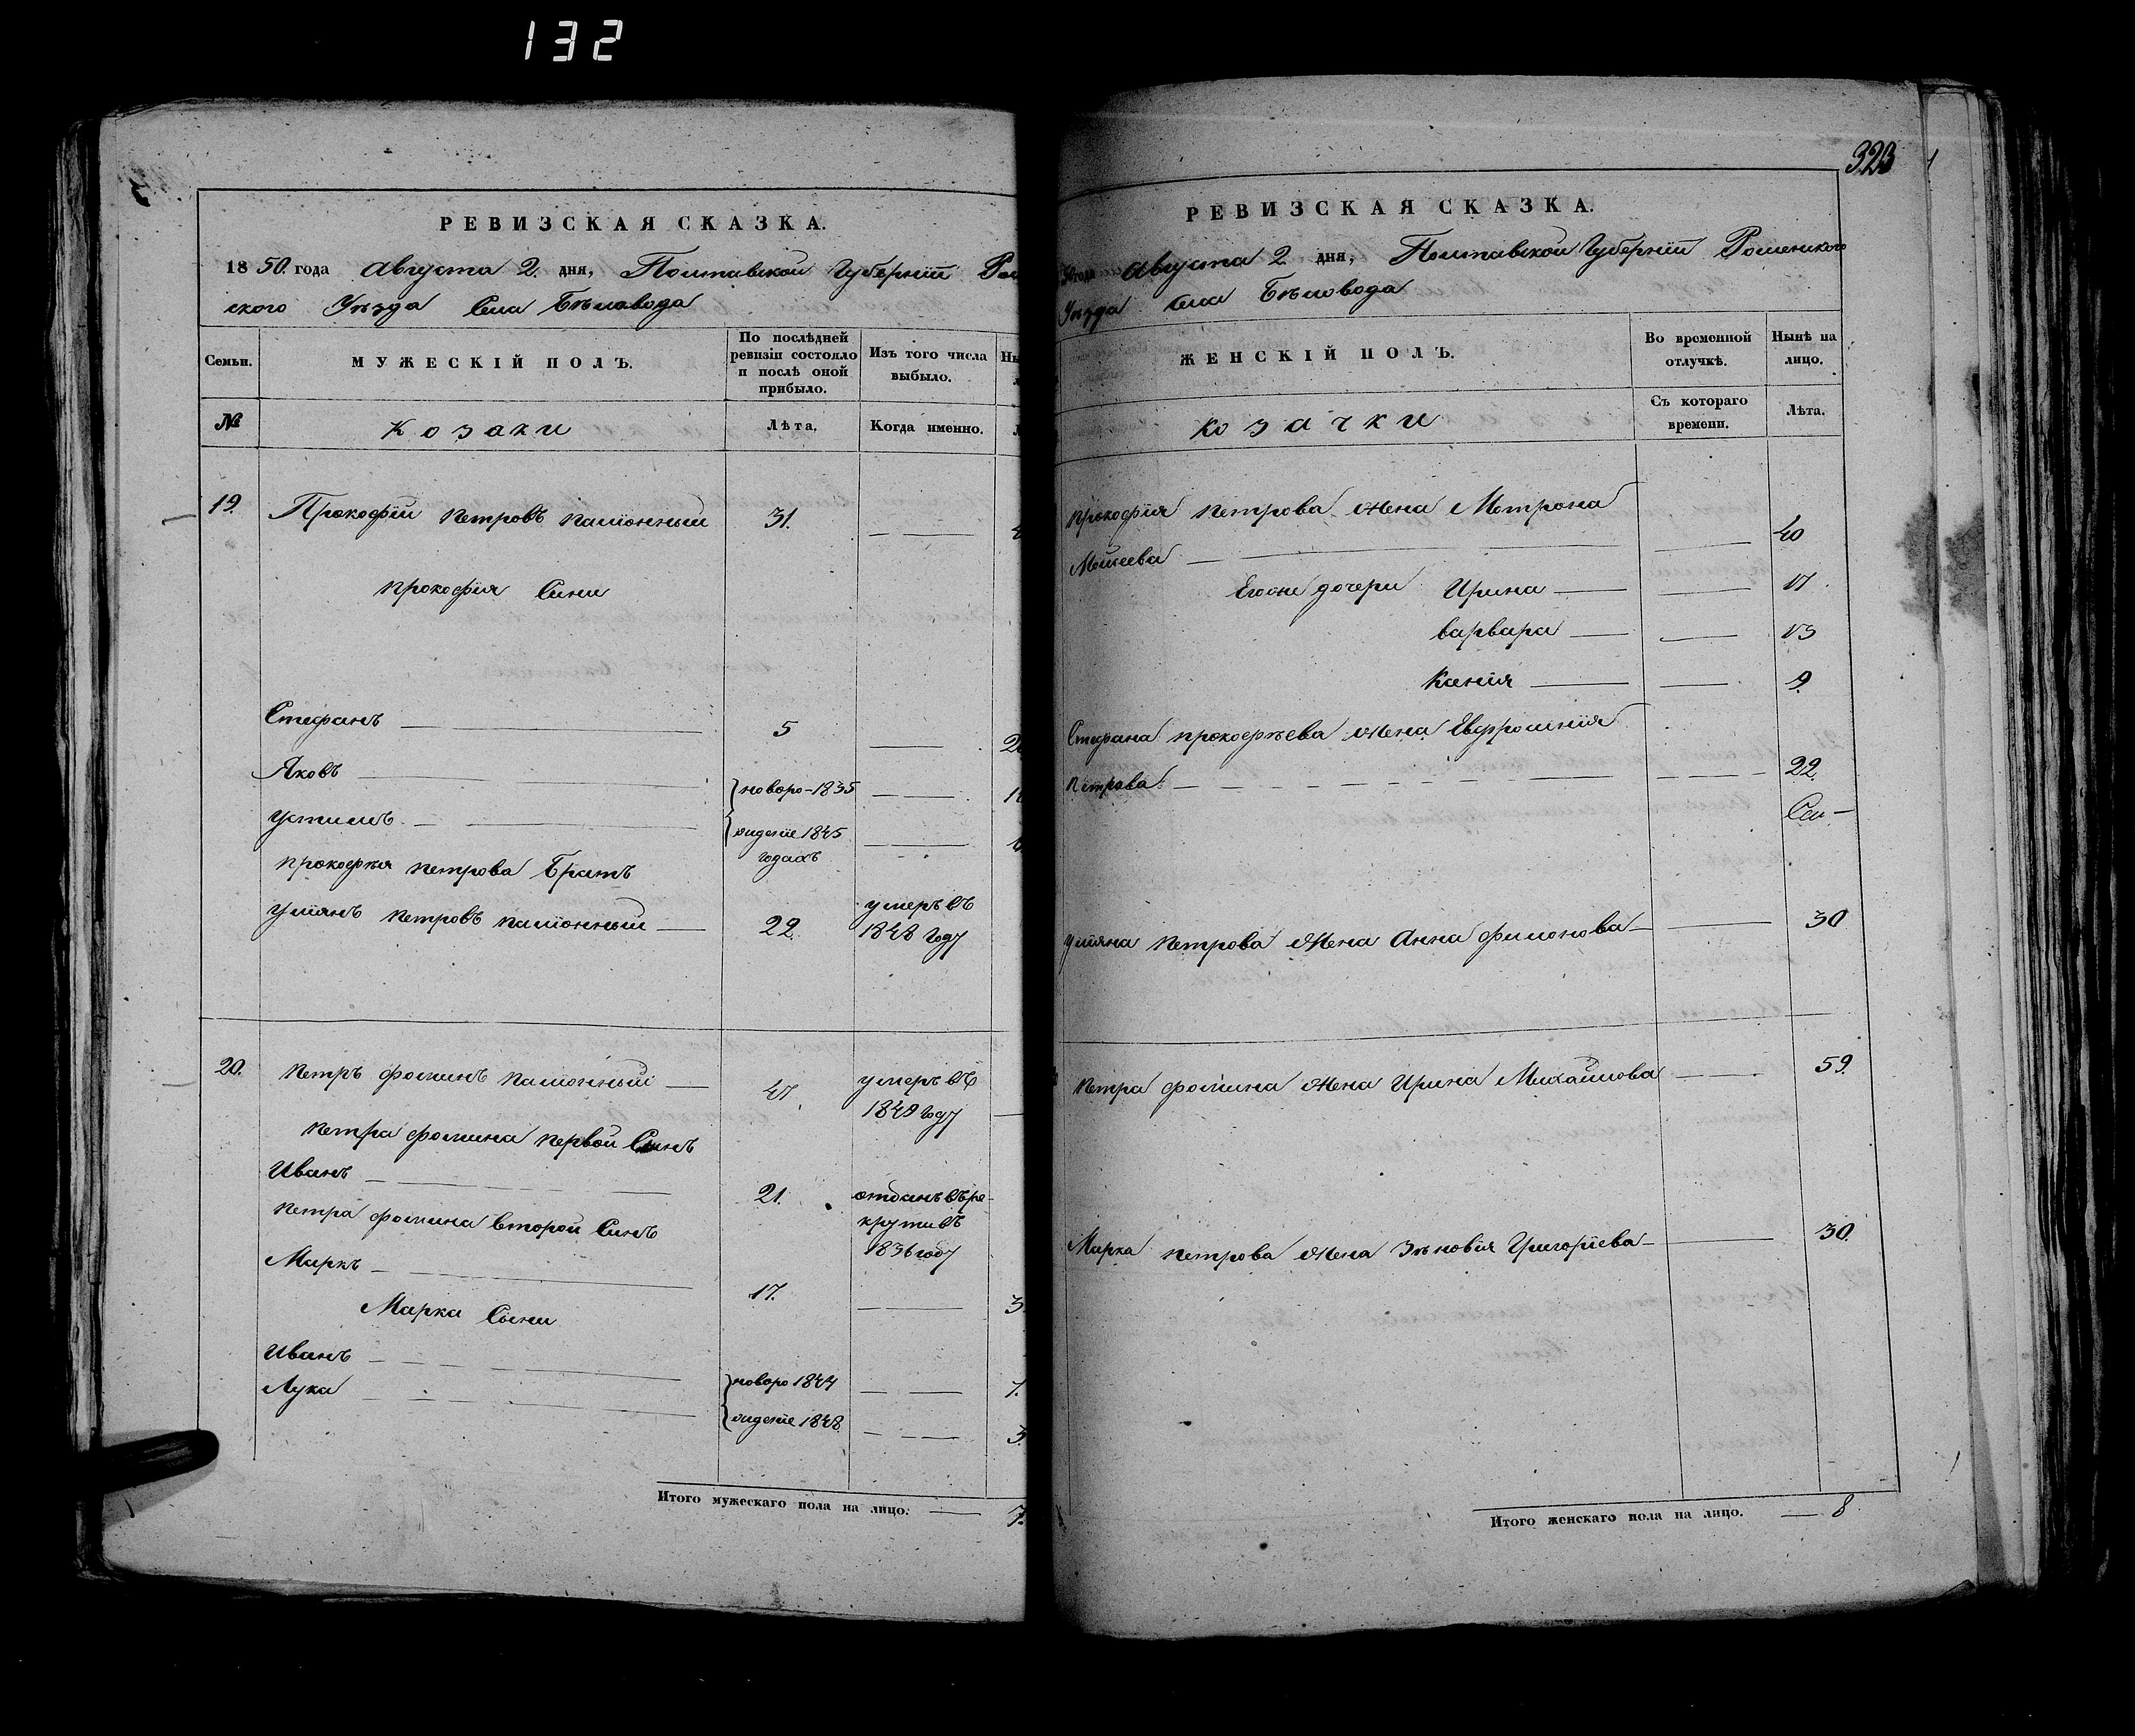 132
РЕВИЗСКАЯ СКАЗКА.
1850. года Августа 2. дня, Полтавской Губернїи Ром
ского Уѣзда Села Бѣловода
Семьи.
МУЖЕСКІЙ ПОЛЪ.
По послѣдней ревизіи состояло и послѣ оной прибыло.
Изъ того числа выбыло.
№
Козаки
Лѣта.
Когда именно.
19. Прокофїй Петровъ 31.
Прокофїя Сини
Стефанъ 5
Яковъ новоро- 1835
Устимъ жденїе 1845
годахъ
Прокофїя Петрова Братъ
Петровъ 22. умеръ въ
1848 году
20. Петръ Фоминъ 47. умеръ въ
1849 году
Петра Фомина первой Синъ
Иванъ 21. отданъ въ ре-
крути въ
1836 году
Петра Фомина второй Синъ
Маркъ 17.
Марка Сыни
Иванъ новоро 1844 7.
Лука жденїе 1848. 3.
Итого мужескаго пола на лицо. 7.
323
РЕВИЗСКАЯ СКАЗКА.
50 года Августа 2 дня, Полтавской Губернїи Роменского
Уѣзда Села Бѣловода
ЖЕНСКІЙ ПОЛЪ.
Во временной отлучкѣ.
Нынѣ на лицо.
Козачки
Съ котораго времени.
Лѣта.
Прокофїя Петрова жена Мотрона
Моисеева 40
дочери Ирина 17
Варвара 13
Ксенїя 9
Стефана Прокофьева жена Евфросинїя
Петрова 22.
Петрова жена Анна Филонова 30
Петра Фомина жена Ирина Михайлова 59.
Марка Петрова жена Зѣновїя Григорїева 30.
Итого женскаго пола на лицо. 8